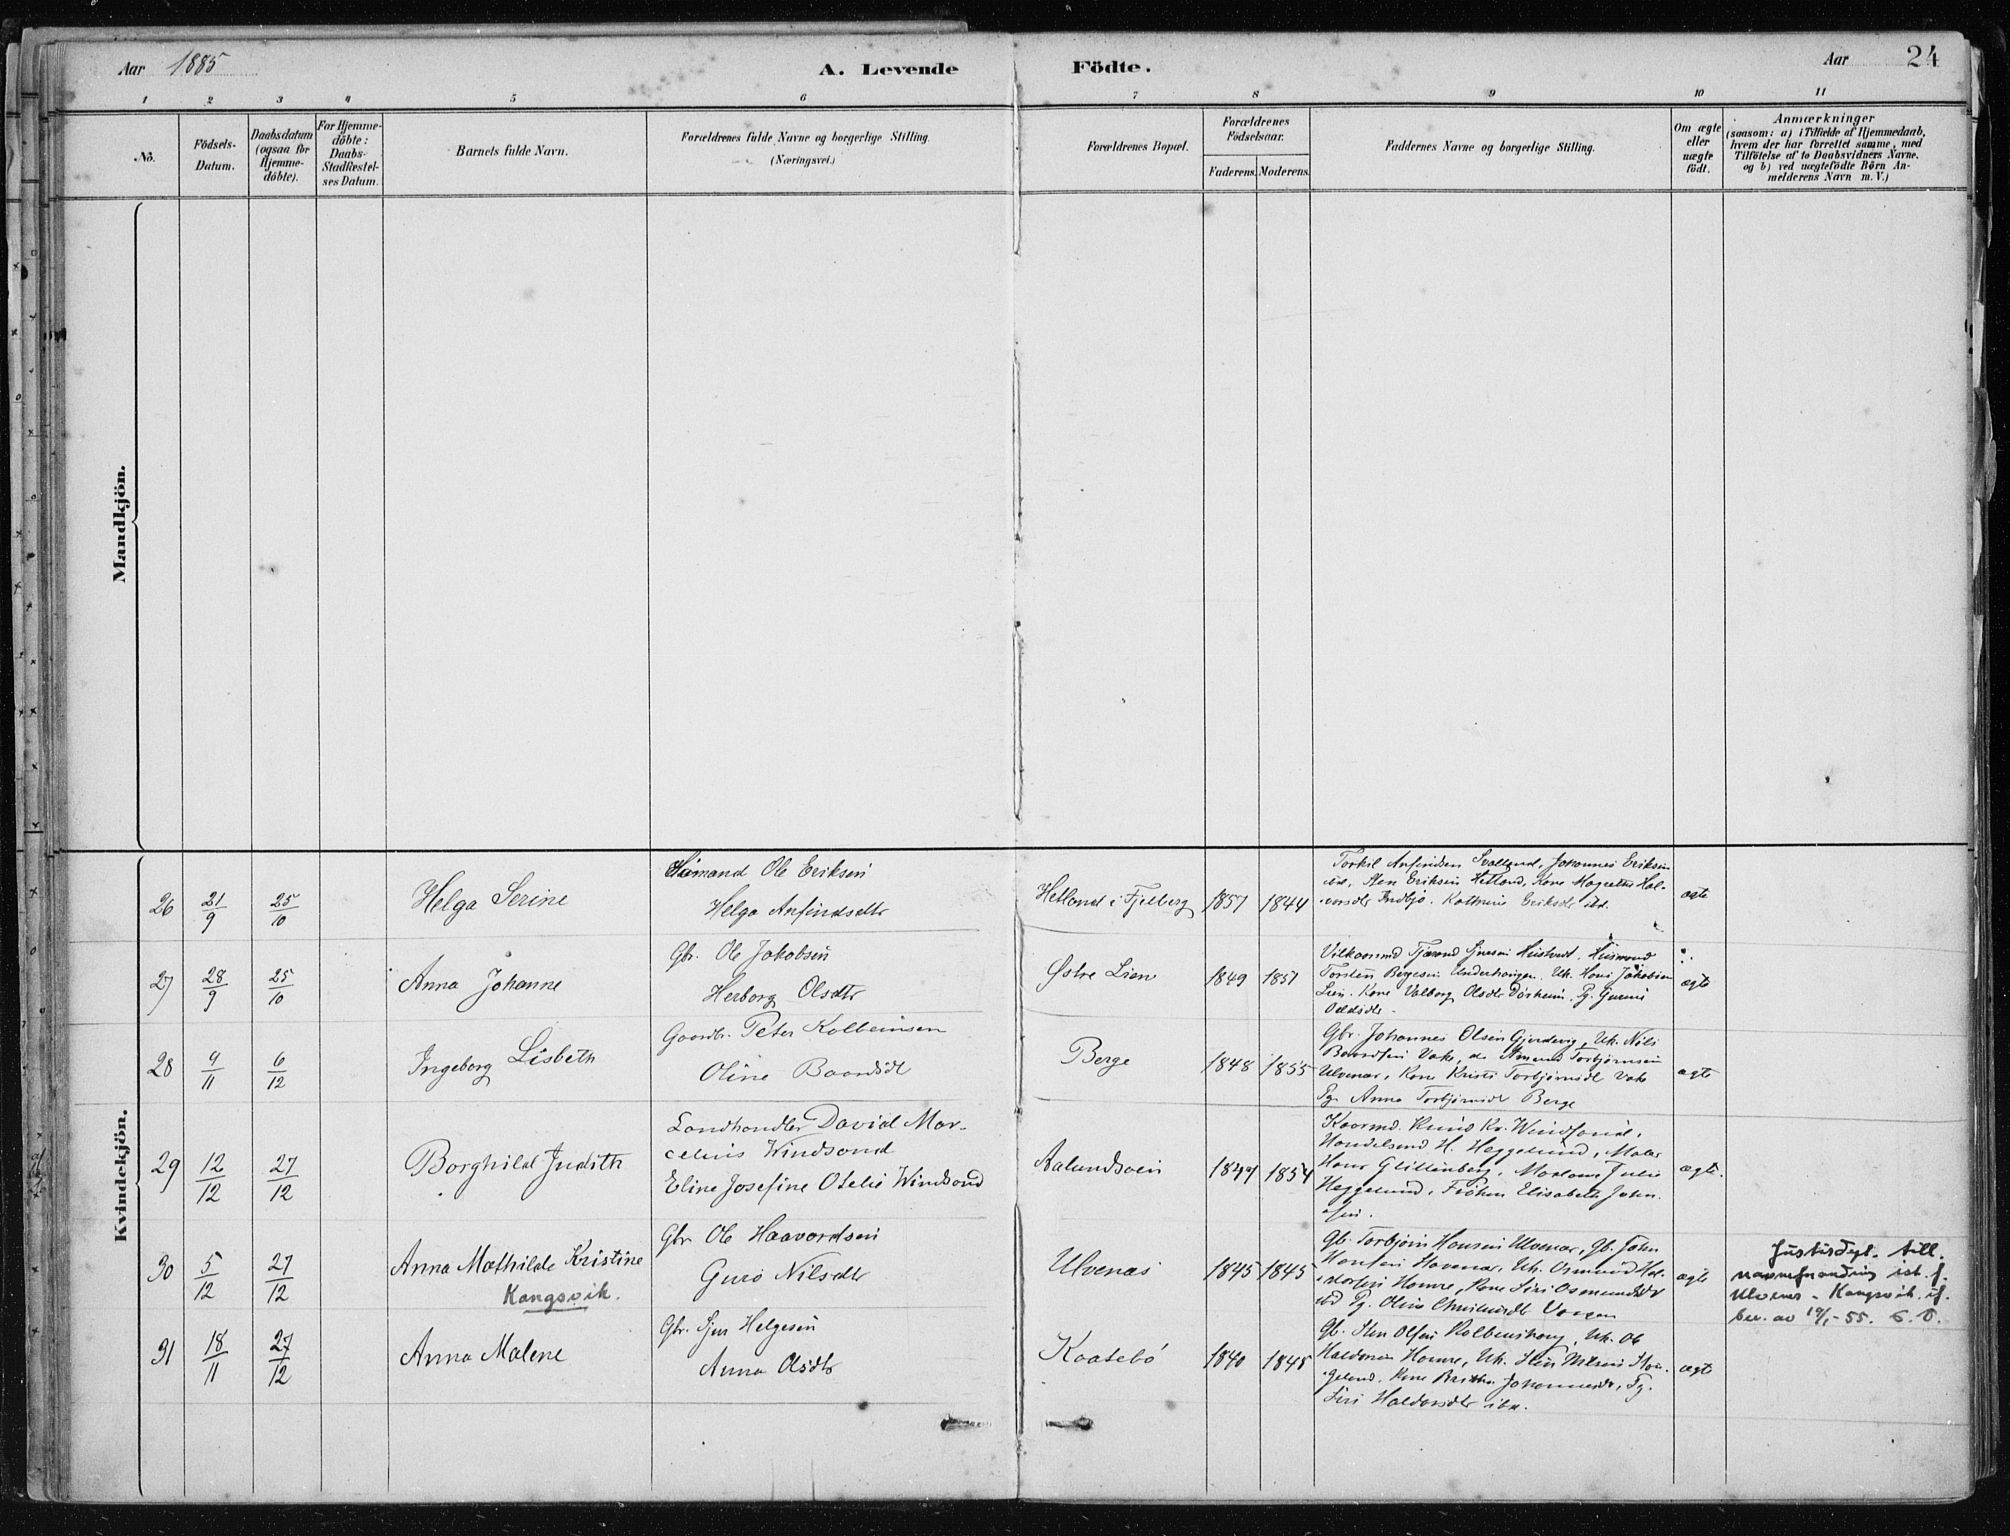 Aar 1885
A. Levende Födte.
Aar 24
1 2 3 4 5 6 7 8 9 10 11
No.
Födsels-
Datum.
Daabsdatum
(ogsaa for
Hjemme-
döbte).
For Hjemme-
döbte:
Daabs-
Stadfæstel-
ses Datum.
Barnets fulde Navn.
Forældrenes fulde Navne og borgerlige Stilling.
(Næringsvei.)
Forældrenes Bopæl.
Forældrenes
Födselsaar.
Faderens. Moderens.
Faddernes Navne og borgerlige Stilling.
Om ægte
eller
uægte
födt.
Anmærkninger
(saasom: a) i Tilfælde af Hjemmedaab,
hvem der har forrettet samme, med
Tilföielse af to Daabsvidners Navne.
og b) ved uægtefödte Börn An-
melderens Navn m. V.)
Mandkjön.
Kvindekjön.
26 21/9 25/10 Helga Serine
Husmand Ole Eriksen
Helga Anfindsdtr
Hetland i Fjelberg 1857 1844
Torkil Anfindsen Svolland, Johannes Eriksen
ibd, Sten Eriksen Hetland, Kone Magrethe Hal-
Kathrine Eriksdtr ibd.
ægte
27 28/9 25/10 Anna Johanne
Gbr. Ole Jakobsen
Herborg Olsdtr
Østre Lien 1849 1851
Torsten Børgesen Underhaugen, Uk. Hans Jakobsen
Lien. Kone Valborg Olsdtr
Oddsdtr.
ægte
28 9/11 6/12 Ingeborg Lisbeth
Gaardbr. Peter Kolbeinsen
Oline Baardsdt
Berge 1848 1855
Gbr. Johannes Olsen Gjerdevig, Uk. Nils
Baardsen Vake, do Amund Torbjørnsen
Ulvenæs, Kone Kristi Torbjørnsdt Vake
Pg. Anna Torbjørnsdt Berge
ægte
29 12/12 27/12 Borghild Judith
Landhandler David Mar-
celius Windsond
Eline Josefine Otelie Windsond
Aalundsoen 1849 1854
Handelsmd H. Heggelund, Maler
Hans Madame Julie
Heggelund, Frøken Elisabeth John-
sen.
ægte.
30 5/12 27/12 Anna Mathilde Kristine
Kongsvik.
Gbr Ole Haavordsen
Guro Nilsdtr
Ulvenæs 1845 1845
Gb. Torbjørn Hansen Ulvenæs, Gb. John
Hansen Uk. Osmund Hal-
dorsen Kone Siri Osmundsdtr
ibd Pg. Oline
ægte
Justisdept. till.
navneforandring ist. f.
Ulvenes - Kongsvik if.
bev. av 19/1-55.
31 18/11 27/12 Anna Malene
Gbr. Sjur Helgesen
Anna Olsdtr
Kaatebö 1840 1845
Gb. Sten Olsen Uk. Ole
Haldorsen Uk. Sten Nilsen
Kone Britha Johannesdt, Pg.
Siri Haldorsdtr ibd.
ægte